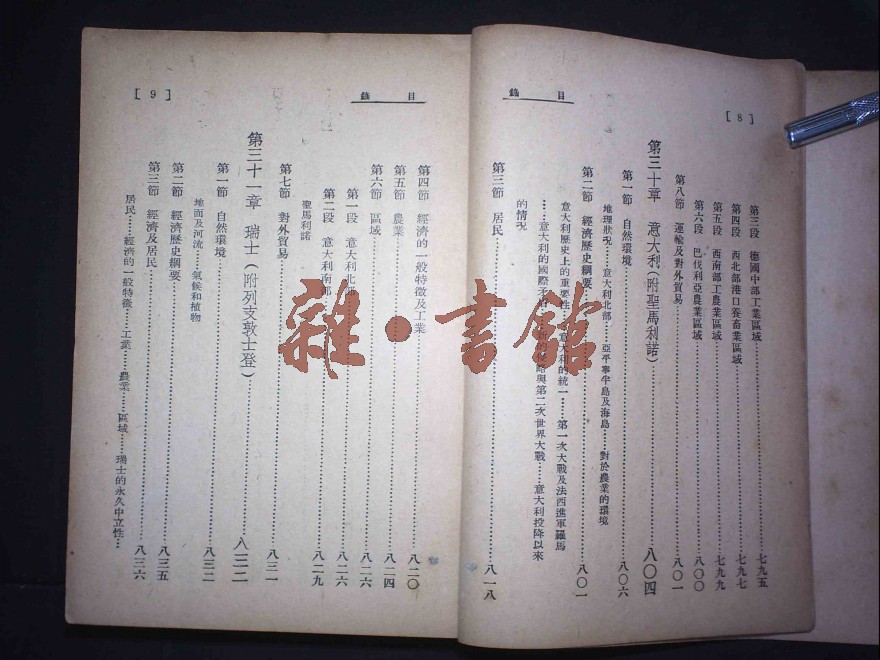 目錄
[8]
第三段 德國中部工業區域……七九五
第四段 西北部港口養畜業區域……七九七
第五段 西南部工農業區域……七九九
第六段 巴伐利亞農業區域……八〇〇
第八節 運輸及對外貿易……八〇一
第三十章 意大利(附聖馬利諾)……八〇四
第一節 自然環境……八〇六
地理狀況……意大利北部……亞平寧半島及海島……對於農業的環境
第二節 經濟歷史綱要……八〇一
意大利歷史上的重要性……意大利的統一……第一次大戰及法西進軍羅馬
……意大利的國際矛盾……與第二次世界大戰……意大利投降以來
的情況
第三節 居民……八一八
目錄
[9]
第四節 經濟的一般特徵及工業……八二〇
第五節 農業……八二四
第六節 區域……八二六
第一段 意大利北部……八二六
第二段 意大利南部……八二九
聖馬利諾
第七節 對外貿易……八三一
第三十一章 瑞士(附列支敦士登)……八三二
第一節 自然環境……八三二
地面及河流……氣候和植物
第二節 經濟歷史綱要……八三五
第三節 經濟及居民……八三六
居民……經濟的一般特徵……工業……農業……區域……瑞士的永久中立性…
雜·書館